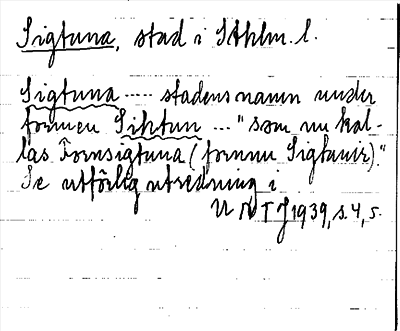 Sigtuna, stad i Sthlm. l.
Sigtuna ..... stadens namn under
formen Sihtun ... "som nu kal-
las Fornsigtuna (fornnu Sigtunir)."
Se utförlig utredning i
UNTJ 1939, s. 4, 5.